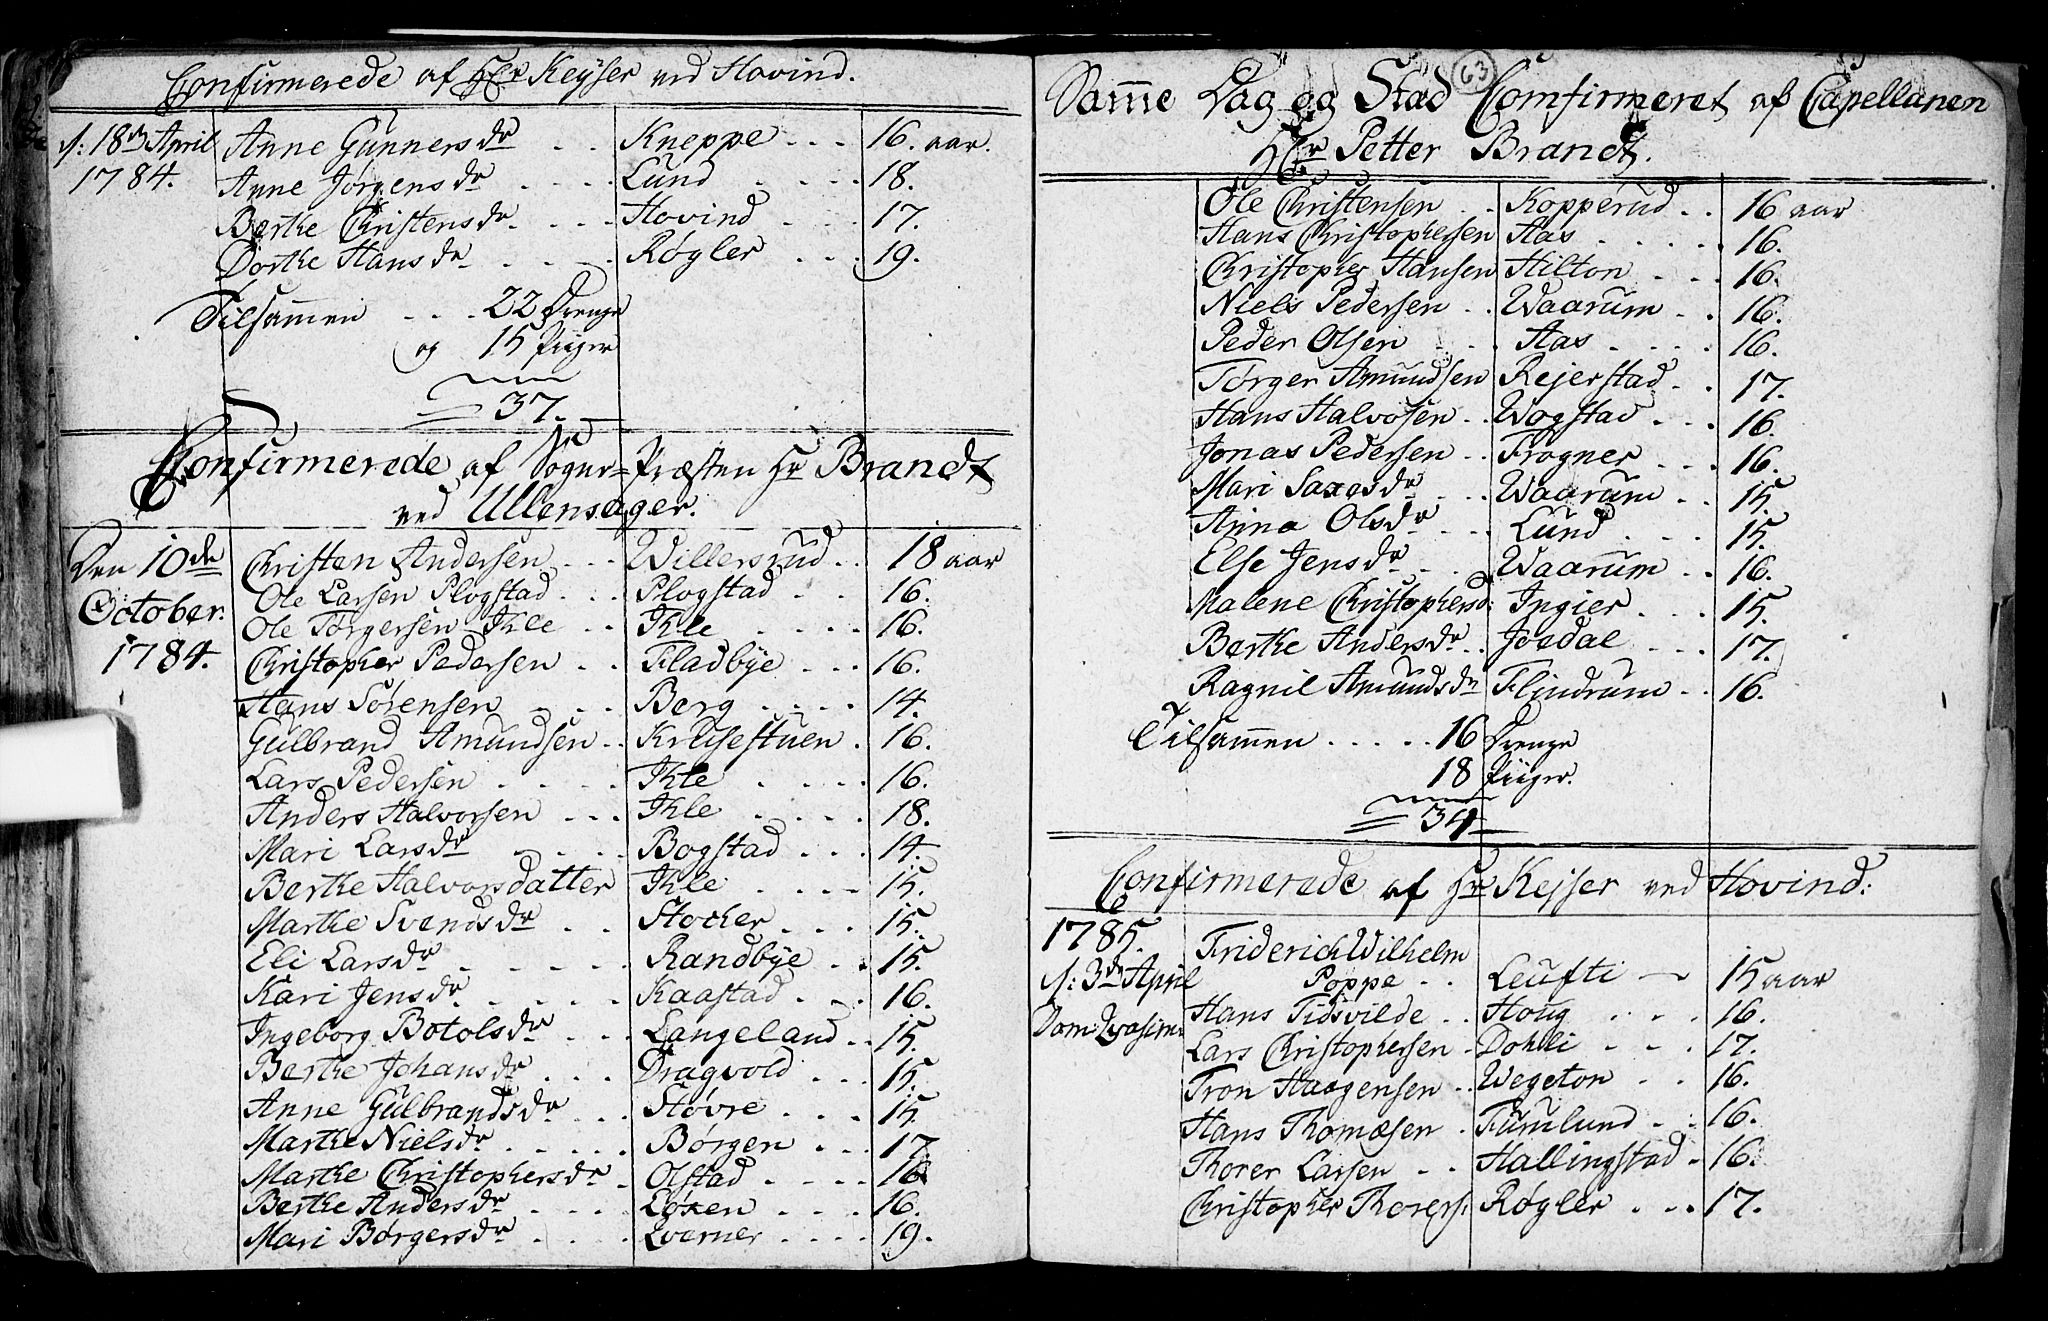 Confirmerede af Hr Keyser ved Hovind.
d: 18de April Anne Gunnersdr Kneppe 16 aar.
1784. Anne Jørgensdr Lund 18.
Berthe Christensdr Hovind 17.
Dorthe Hansdr Røgler 19.
Tilsammen 22 Drenge
og 15 Piiger
37.
Confirmerede af Sogne-Præsten Hr Brandt
ved Ullensager.
Den 10de Christen Andersen Willersrud 18 aar
October: Ole Larsen Plogstad Plogstad 16.
Ole Torgersen Ihle Ihle 16.
1784. Christopher Pedersen Fladbye 16.
Hans Sørensen Berg 14.
Gulbrand Amundsen Krusestuen 16.
Lars Pedersen Ihle 16.
Anders Halvorsen Ihle 18.
Mari Larsdr Bogstad 14.
Berthe Halvorsdatter Ihle 15.
Marthe Svendsdr Stocker 15.
Eli Larsdr Randbye 15.
Kari Jensdr Kaastad 16.
Ingeborg Botolsdr Langeland 15.
Berthe Johansdr Dragvold 15.
Anne Gulbrandsdr Støvre 15.
Marthe Nielsdr Børgen 17
Marthe Christophersdr Olstad 16
Berthe Andersdr Løken 16.
Mari Børgersdr Qverner 19.
63
Samme Dag og Stad Comfirmeret af Capellanen
Hr Petter Brandt.
Ole Christensen Kopperud 16 aar
Hans Christophersen Aas 16.
Christopher Hansen Hilton 16.
Niels Pedersen Waarum 16.
Peder Olsen Aas 16.
Torger Amundsen Rejerstad 17.
Hans Halvosen Wogstad 16.
Jonas Pedersen Frogner 16.
Mari Saxesdr Waarum 15.
Anna Olsdr Lund 15.
Else Jensdr Waarum 16.
Malene Christophersd: Ingier 15.
Berthe Andersdr Joedal 17.
Ragnil Amundsdr Flindrum 16.
Tilsammen 16 Drenge
18 Piiger.
34
Confirmerede af Hr Kejser ved Hovind:
1785. Friderich Wilhelm
d: 3de April Poppe Leufti 15 aar
Dom: Qvasim: Hans Tidsvilde Houg 16.
Lars Christophersen Dohli 17.
Tron Haagensen Wegeton 16.
Hans Thomæsen Furulund 16.
Thorer Larsen Hallingstad 16.
Christopher Thorers: Røgler 17.